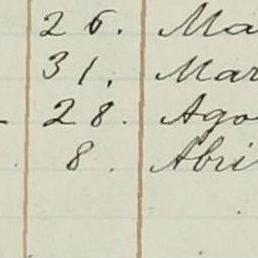 26. Ma
31. Mar
28. Ago
8. Abri